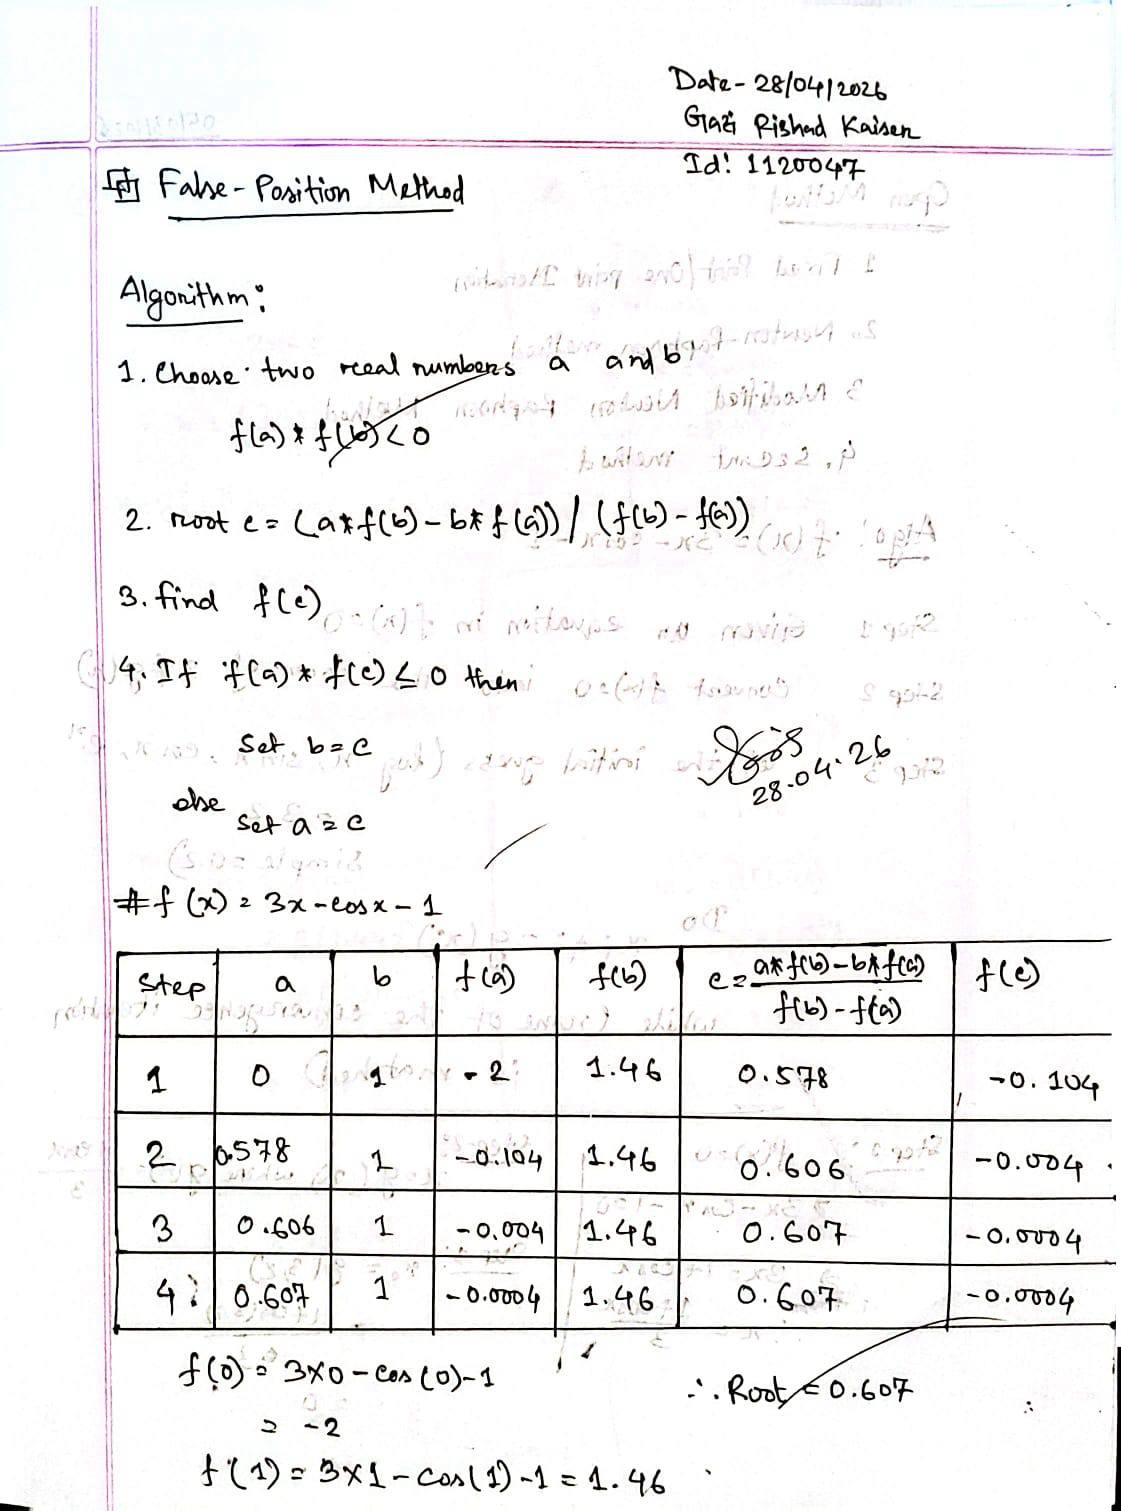 Date- 28/04/2026
Gazi Rishad Kaisar
Id: 1120047
False-Position Method
Algorithm:
1. Choose two real numbers a and b
f(a) * f(b) < 0
2. root c = (a*f(b) - b*f(a)) / (f(b) - f(a))
3. find f(c)
4. If f(a) * f(c) ≤ 0 then
Set b = c
else
set a = c
28.04.26
# f(x) = 3x - cosx - 1
Step a b f(a) f(b) c = a*f(b) - b*f(a) / f(b) - f(a) f(c)
1 0 1 -2 1.46 0.578 -0.104
2 0.578 1 -0.104 1.46 0.606 -0.004
3 0.606 1 -0.004 1.46 0.607 -0.0004
4 0.607 1 -0.0004 1.46 0.607 -0.0004
f(0) = 3x0 - cos(0) - 1
= -2
∴ Root = 0.607
f(1) = 3x1 - cos(1) - 1 = 1.46